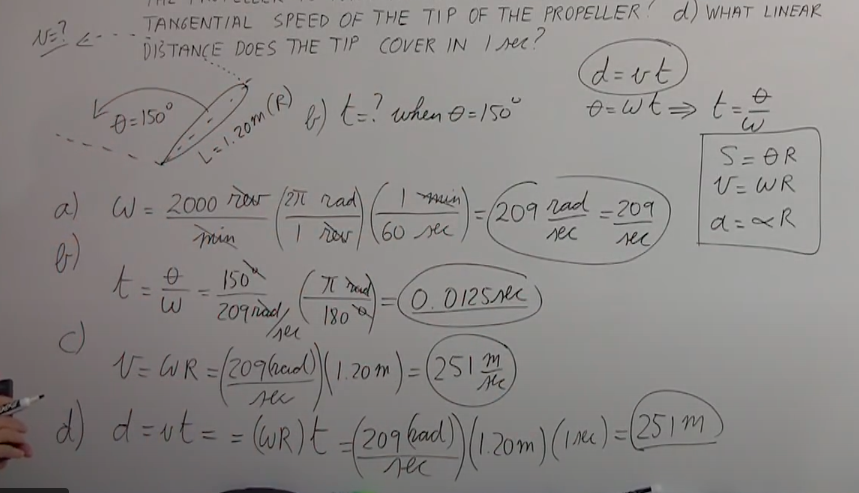 TANGENTIAL SPEED OF THE TIP OF THE PROPELLER? d) WHAT LINEAR
v=? ← DISTANCE DOES THE TIP COVER IN 1 sec?
d = vt
θ = 150° L = 1.20m (R) b) t = ? when θ = 150° θ = ωt ⇒ t = θ/ω
S = θR
v = ωR
a = αR
a) ω = 2000 rev/min (2π rad/1 rev) (1 min/60 sec) = 209 rad/sec = 209/sec
b) t = θ/ω = 150°/209 rad/sec (π rad/180°) = 0.0125 sec
c) v = ωR = (209 (rad)/sec) (1.20 m) = 251 m/sec
d) d = vt = = (ωR) t = (209 (rad)/sec) (1.20m) (1 sec) = 251 m